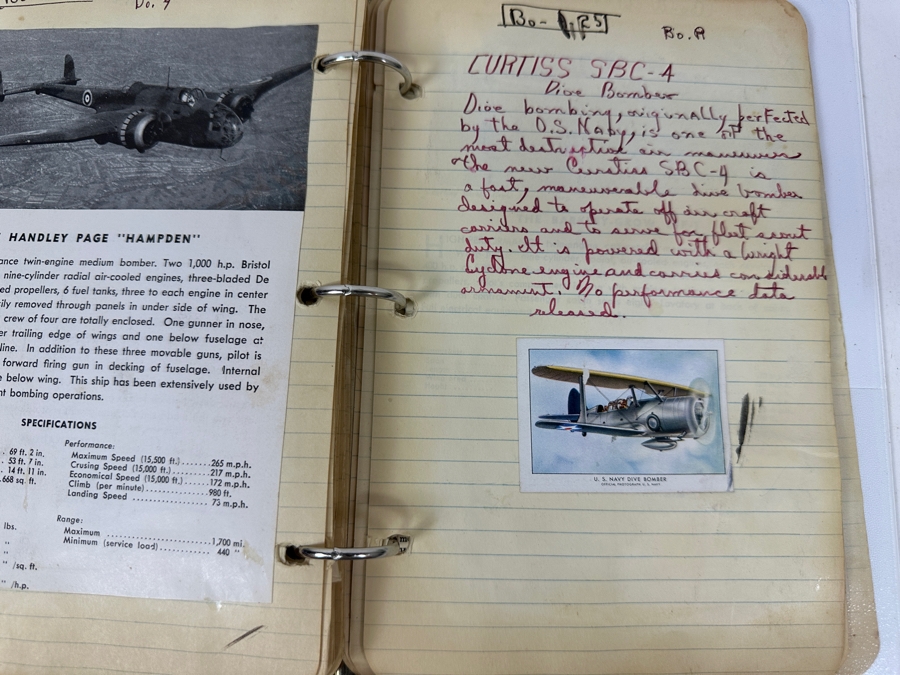 Do. 4
HANDLEY PAGE "HAMPDEN"
ance twin-engine medium bomber. Two 1,000 h.p. Bristol
nine-cylinder radial air-cooled engines, three-bladed De
ed propellers, 6 fuel tanks, three to each engine in center
ily removed through panels in under side of wing. The
crew of four are totally enclosed. One gunner in nose,
er trailing edge of wings and one below fuselage at
line. In addition to these three movable guns, pilot is
forward firing gun in decking of fuselage. Internal
e below wing. This ship has been extensively used by
nt bombing operations.
SPECIFICATIONS
. 69 ft. 2 in.
. 53 ft. 7 in.
. 14 ft. 11 in.
.668 sq. ft.
lbs.
"
"
" /sq. ft.
" /h.p.
Performance:
Maximum Speed (15,500 ft.).......265 m.p.h.
Crusing Speed (15,000 ft.)........217 m.p.h.
Economical Speed (15,000 ft.).....172 m.p.h.
Climb (per minute)................980 ft.
Landing Speed .................... 73 m.p.h.
Range:
Maximum .........................1,700 mi.
Minimum (service load)........... 440 "
Bo-
Bo. A
CURTISS SBC-4
Dive Bomber
Dive bombing, origunally perfected
by the U.S. Navy, is one of the
most destruptive air maneuver
The new Curtiss SBC-4 is
a fast, maneuverable dive bomber
designed to operate off air craft
carriers and to serve for fleet scout
duty. It is powered with a Wright
Cyclone engine and carries considerable
armament. No performance data
released.
U. S. NAVY DIVE BOMBER
OFFICIAL PHOTOGRAPH U. S. NAVY